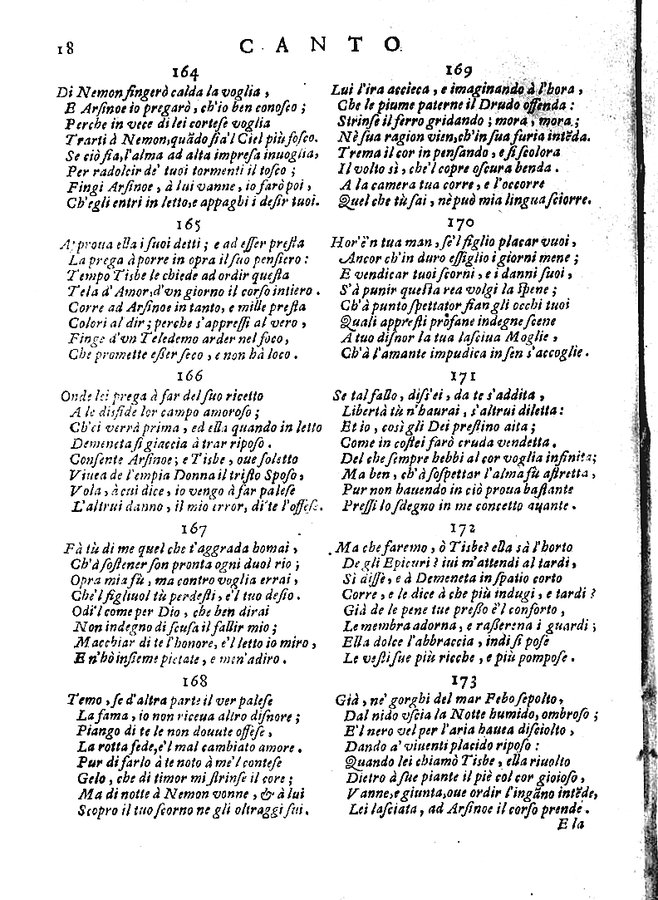 18 CANTO
164
Di Nemon fingerò calda la voglia,
E Arsinoe io pregarò, ch'io ben conosco;
Perche in vece di lei cortese voglia
Trarti à Nemon, quãdo fia'l Ciel più fosco.
Se ciò fia, l'alma ad alta impresa inuoglia,
Per radolcir de' tuoi tormenti il tosco;
Fingi Arsinoe, à lui vanne, io farò poi,
Ch'egli entri in letto, e appaghi i desir tuoi.
165
Approua ella i suoi detti; e ad esser presta
La prega à porre in opra il suo pensiero:
Tempo Tisbe le chiede ad ordir questa
Tela d'Amor, d'vn giorno il corso intiero.
Corre ad Arsinoe in tanto, e mille presta
Colori al dir; perche s'appressi al vero,
Finge d'vn Teledemo arder nel foco,
Che promette esser seco, e non hà loco.
166
Onde lei prega à far del suo ricetto
A le disfide lor campo amoroso;
Ch'ei verrà prima, ed ella quando in letto
Demeneta si giaccia à trar riposo.
Consente Arsinoe; e Tisbe, oue soletto
Viuea de l'empia Donna il tristo Sposo,
Vola, à cui dice, io vengo à far palese
L'altrui danno, il mio error, di te l'offese.
167
Fà tù di me quel che t'aggrada homai,
Ch'à sostener son pronta ogni duol rio;
Opra mia fù, ma contro voglia errai,
Che'l figliuol tù perdesti, e'l tuo desio.
Odi'l come per Dio, che ben dirai
Non indegno di scusa il fallir mio;
Macchiar di te l'honore, e'l letto io miro,
E n'hò insieme pietate, e men'adiro.
168
Temo, se d'altra parte il ver palese
La fama, io non riceua altro disnore;
Piango di te le non douute offese,
La rotta fede, e'l mal cambiato amore.
Pur di farlo à te noto à me'l contese
Gelo, che di timor mi strinse il core;
Ma di notte à Nemon vonne, & à lui
Scopro il tuo scorno ne gli oltraggi sui.
169
Lui l'ira accieca, e imaginando à l'hora,
Che le piume paterne il Drudo offenda:
Strinse il ferro gridando; mora, mora;
Nè sua ragion vien, ch'in sua furia intẽda.
Trema il cor in pensando, e si scolora
Il volto sì, che'l copre oscura benda.
A la camera tua corre, e l'occorre
Quel che tù sai, nè può mia lingua sciorre.
170
Hor'è'n tua man, se'l figlio placar vuoi,
Ancor ch'in duro essiglio i giorni mene;
E vendicar tuoi scorni, e i danni suoi,
S'à punir questa rea volgi la spene;
Ch'à punto spettator fian gli occhi tuoi
Quali appresti profane indegne scene
A tuo disnor la tua lasciua Moglie,
Ch'à l'amante impudica in sen s'accoglie.
171
Se tal fallo, diss'ei, da te s'addita,
Libertà tù n'haurai, s'altrui diletta:
Et io, così gli Dei prestino aita;
Come in costei farò cruda vendetta.
Del che sempre hebbi al cor voglia infinita;
Ma ben, ch'à sospettar l'alma fù astretta,
Pur non hauendo in ciò proua bastante
Pressi lo sdegno in me concetto auante.
172
Ma che faremo, ò Tisbe? ella sà l'horto
De gli Epicuri? iui m'attendi al tardi,
Sì disse, e à Demeneta in spatio corto
Corre, e le dice à che più indugi, e tardi?
Già de le pene tue presso è'l conforto,
Le membra adorna, e rasserena i guardi;
Ella dolce l'abbraccia, indi si pose
Le vesti sue più ricche, e più pompose.
173
Già, ne' gorghi del mar Febo sepolto,
Dal nido vscia la Notte humido, ombroso;
E'l nero vel per l'aria hauea disciolto,
Dando a' viuenti placido riposo:
Quando lei chiamò Tisbe, ella riuolto
Dietro à sue piante il piè col cor gioioso,
Vanne, e giunta, oue ordir l'ingãno intẽde,
Lei lasciata, ad Arsinoe il corso prende.
E la